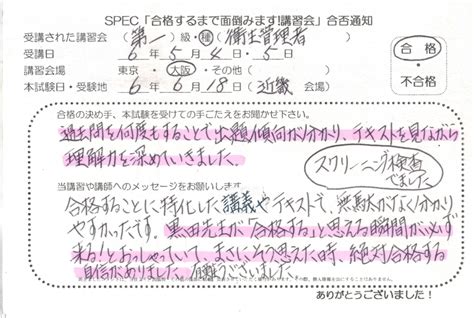 SPEC「合格するまで面倒みます!講習会」合否通知
受講された講習会 (第一)級・種(衛生管理者)
受講日 6年5月4日・5日
合格・不合格
講習会場 東京・大阪・その他( )
本試験日・受験地 6年6月18日(近畿)
合格の決め手、本試験を受けての手ごたえをお聞かせ下さい。
過去問を何度もすることで出題傾向が分かり、テキストを見ながら
理解力を深めていきました。
スクリーニング検査
でました
当講習や講師へのメッセージをお願いします。
合格することに特化した講義やテキストで、無駄がなく分かり
やすかったです。黒田先生が「合格する」と思える瞬間が必ず
来る!とおっしゃっていて、まさにそう思えた時、絶対合格する
自信がありました。有難うございました。
ありがとうございました!